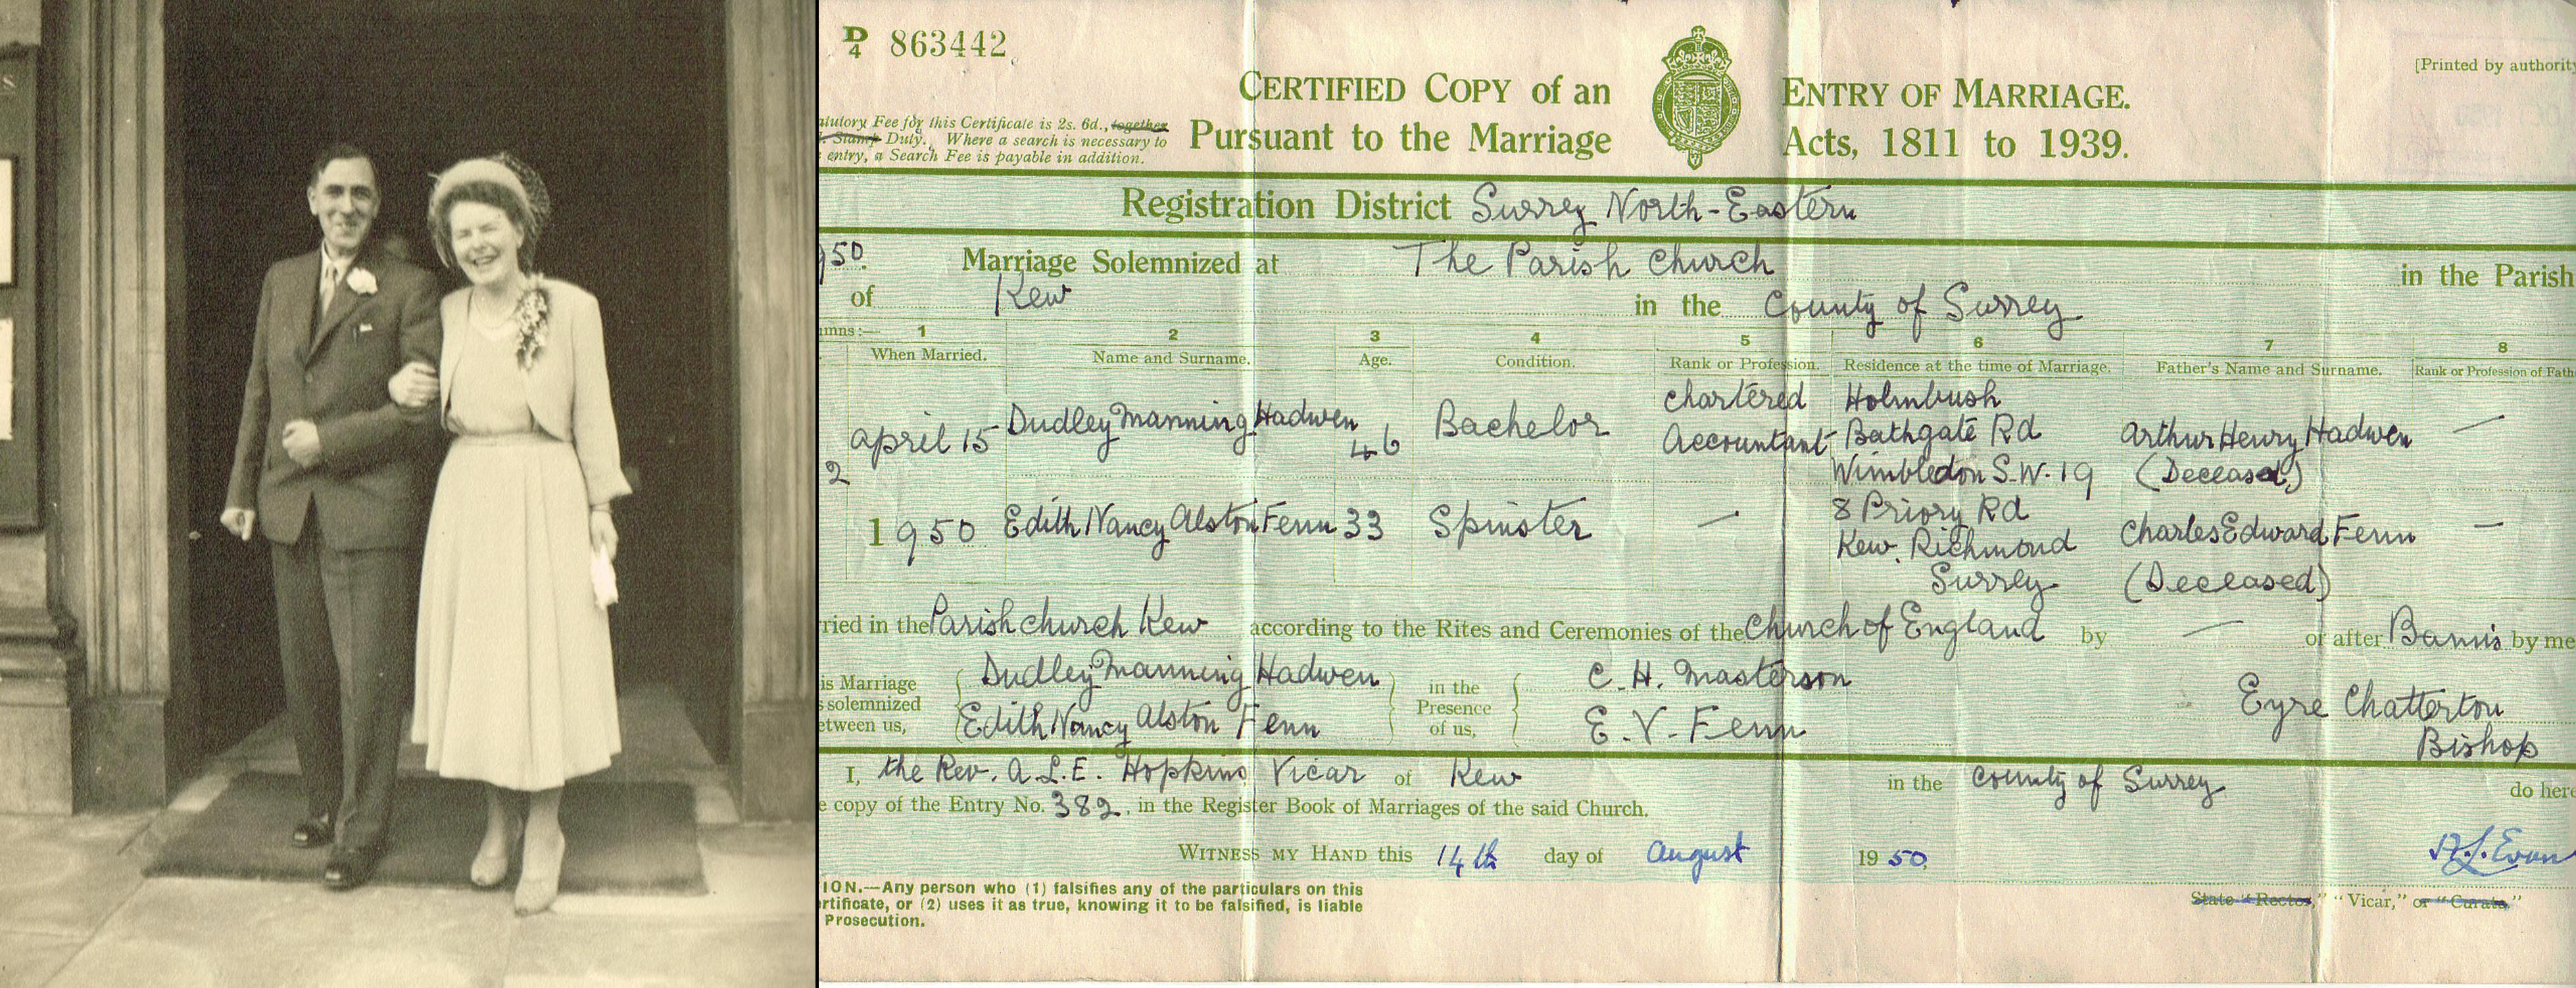 S
D
4 863442
[Printed by authority
CERTIFIED COPY of an ENTRY OF MARRIAGE.
Pursuant to the Marriage Acts, 1811 to 1939.
atutory Fee for this Certificate is 2s. 6d., together
Stamp Duty. Where a search is necessary to
entry, a Search Fee is payable in addition.
Registration District Surrey North-Eastern
950. Marriage Solemnized at The Parish Church in the Parish
of Kew in the County of Surrey
umns:— 1 2 3 4 5 6 7 8
When Married. Name and Surname. Age. Condition. Rank or Profession. Residence at the time of Marriage. Father's Name and Surname. Rank or Profession of Fath
2 April 15 Dudley Manning Hadwen 46 Bachelor Chartered Accountant Holmbush Bathgate Rd Wimbledon S.W. 19 Arthur Henry Hadwen (Deceased) —
1950 Edith Nancy Alston Fenn 33 Spinster — 8 Priory Rd Kew. Richmond Surrey Charles Edward Fenn (Deceased) —
rried in the Parish church Kew according to the Rites and Ceremonies of the Church of England by — or after Banns by me
is Marriage
s solemnized
etween us,
Dudley Manning Hadwen
Edith Nancy Alston Fenn
in the
Presence
of us,
C. H. Masterson
E. V. Fenn
Eyre Chatterton
Bishop
I, the Rev. A.L.E. Hopkins, Vicar of Kew in the County of Surrey do here
e copy of the Entry No. 382, in the Register Book of Marriages of the said Church.
WITNESS MY HAND this 14th day of August 1950,
ION.—Any person who (1) falsifies any of the particulars on this
rtificate, or (2) uses it as true, knowing it to be falsified, is liable
Prosecution.
State "Rector," "Vicar," or "Curate"